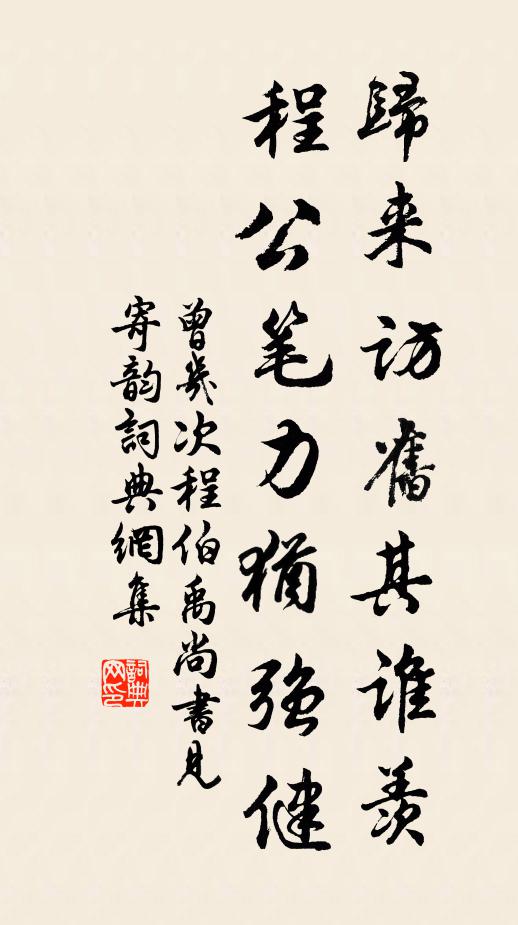 歸来訪舊其誰羨
程公笔力猶强健
曾幾次程伯禹尚書見
寄韵詞典網集
詞典网印